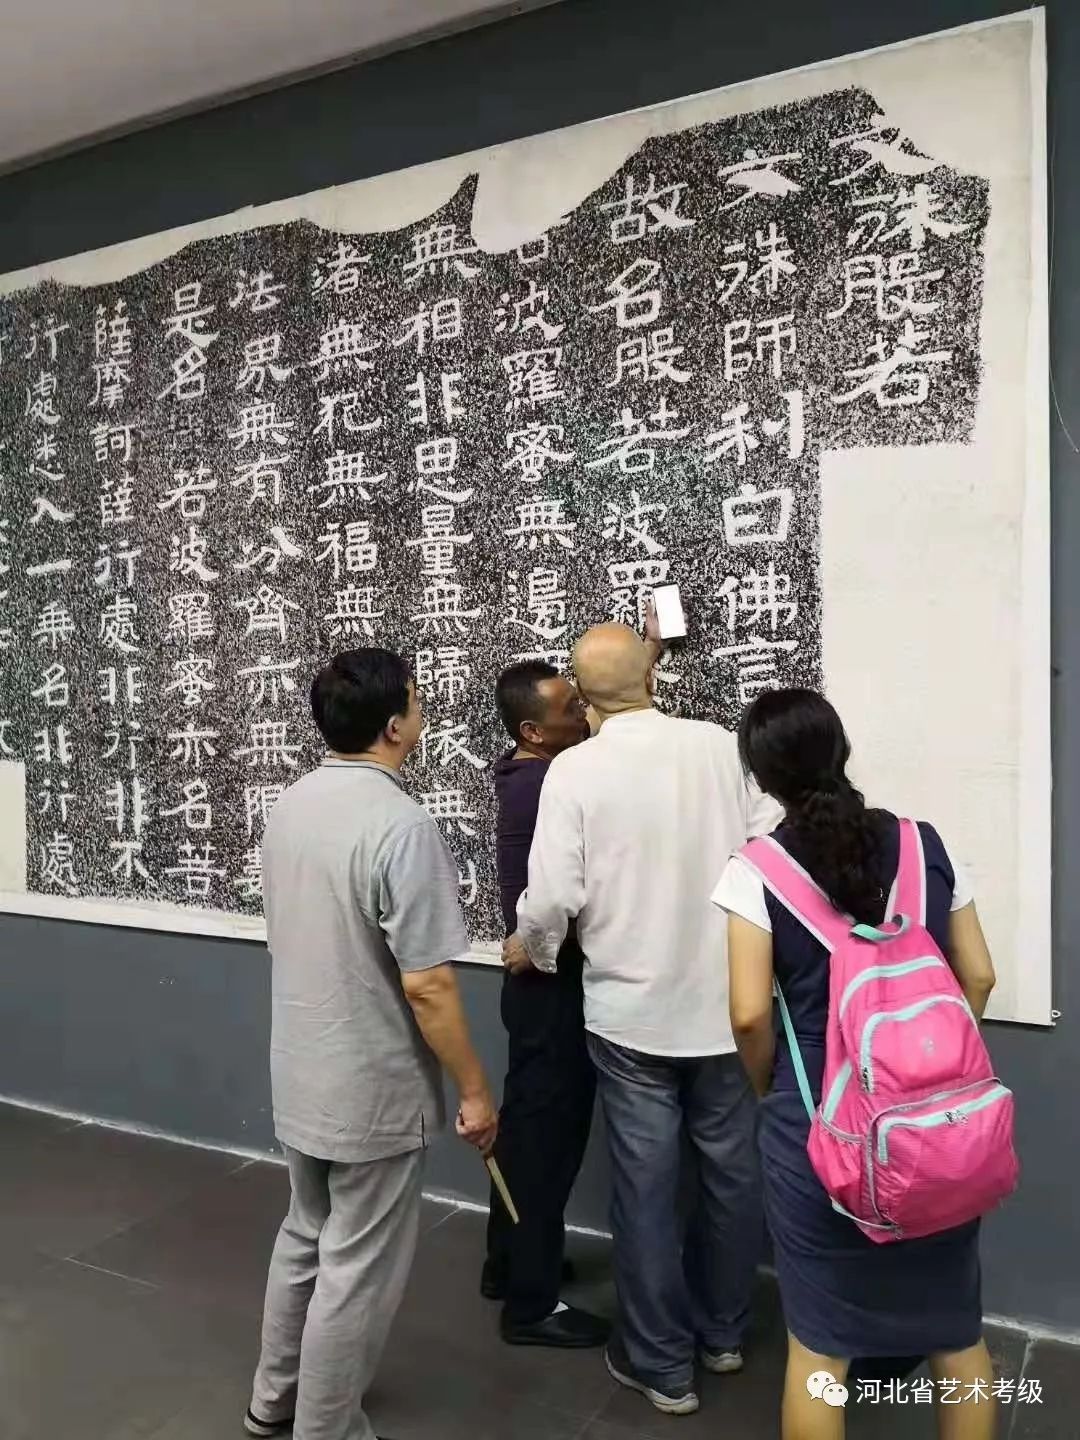 文殊般若
文殊師利白佛言
故名般若波羅
波羅蜜無邊
無相非思量無歸依無
渚無犯無福無
法界無有分齊亦無限數
是名般若波羅蜜亦名菩
薩摩訶薩行處非行非不
行處悉入一乘名非行處
河北省艺术考级